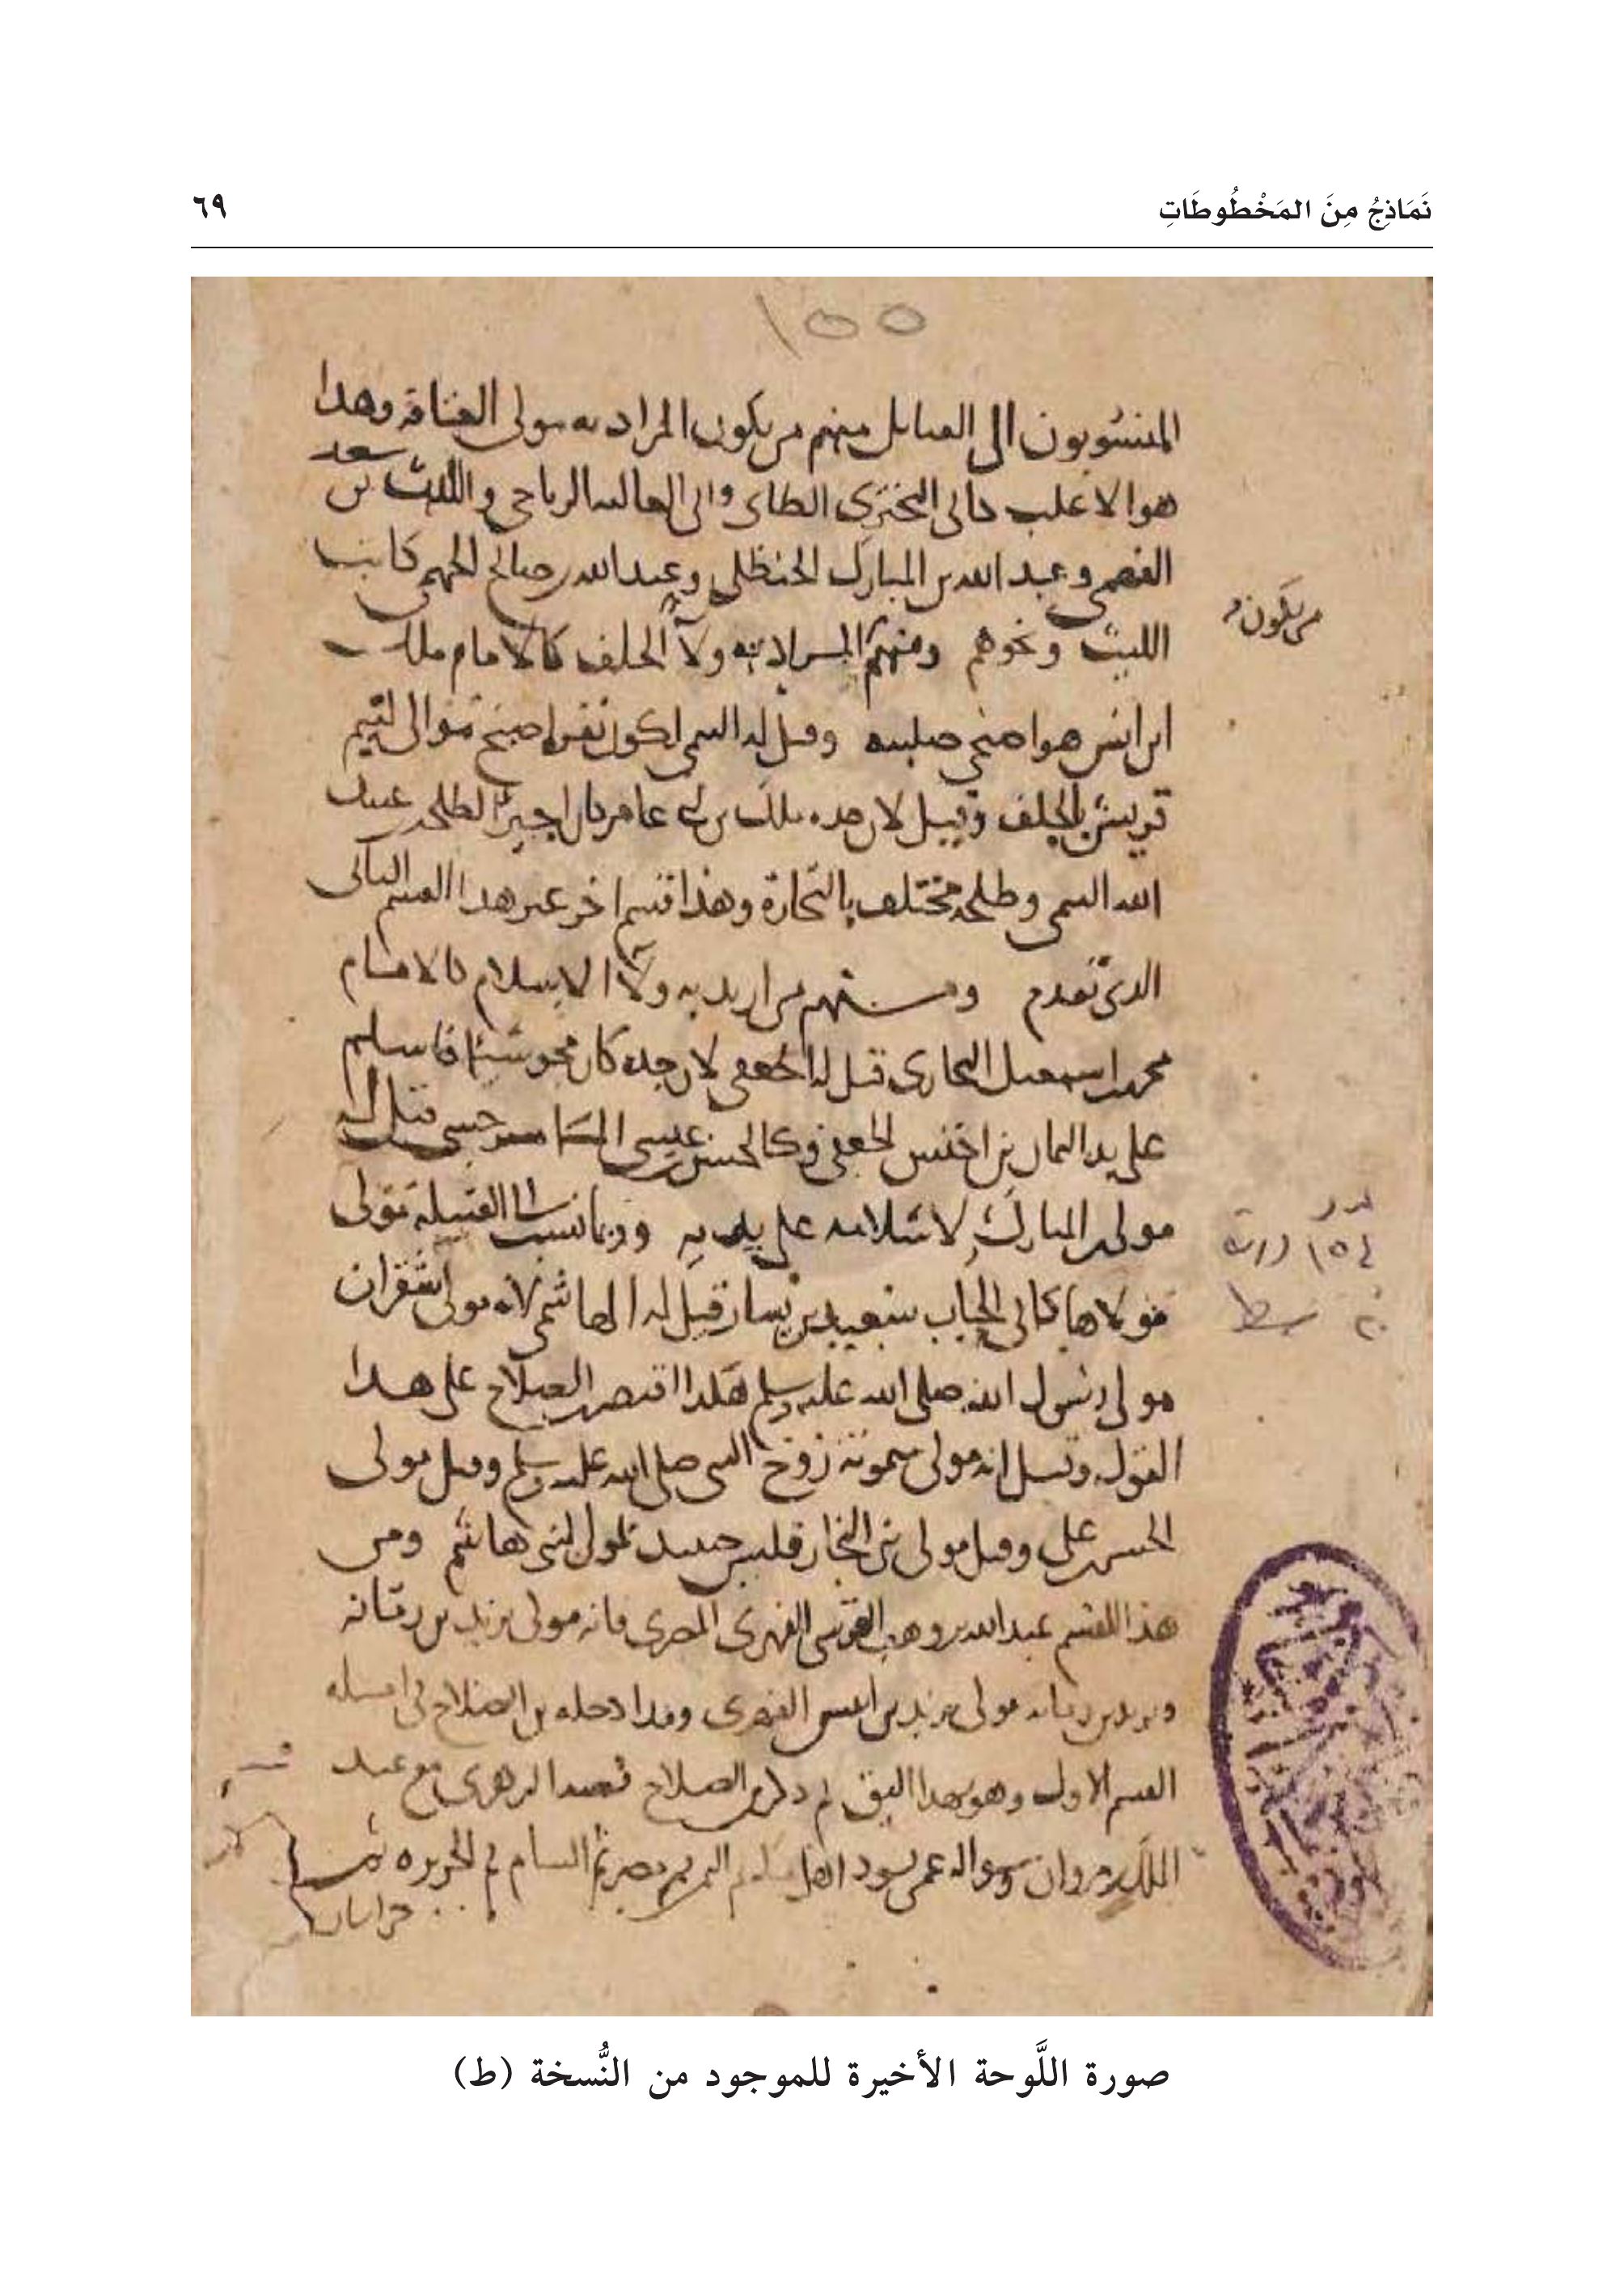 نَمَاذِجُ مِنَ المَخْطُوطَاتِ
٦٩
١٥٥
المنسوبون الى القبائل منهم من يكون المراد به مولى العتاقة وهذا
هو الاغلب كابى البخترى الطاى وابى العالية الرياحى والليث بن سعد
الفهمى وعبد الله بن المبارك الحنظلى وعبد الله بن صالح الجهنى كاتب
الليث ونحوهم ومنهم المراد به ولآ الحلف كالامام ملك
ابن انس هو اصبحى صليبة وقيل له التيمى لكون نفر اصبح موالى لتيم
قريش بالحلف وقيل لان جده ملك بن ابى عامر كان اجيرا لطلحة بن عبيد
الله التيمى وطلحة مختلف بالتجارة وهذا قسم اخر غير هذا القسم الثانى
الذى تقدم ومنهم من اريد به ولآ الاسلام كالامام
محمد بن اسمعيل البخارى قيل له الجعفى لان جده كان مجوسيا فاسلم
على يد اليمان بن اخنس الجعفى وكالحسن بن عيسى
مولى ابن المبارك لاسلامه على يديه وربما نسب الى القبيلة مولى
مولاها كابى الحباب سعيد بن يسار قيل له الهاشمى لانه مولى شقران
مولى رسول الله صلى الله عليه وسلم هكذا اقتصر ابن الصلاح على هذا
القول وقيل انه مولى ميمونة زوج النبى صلى الله عليه وسلم وقيل مولى
الحسن بن على وقيل مولى بنى النجار فليس حينئذ بمولى لبنى هاشم ومن
هذا القسم عبد الله بن وهب القرشى الفهرى المصرى فانه مولى يزيد بن رمانه
ويزيد بن رمانه مولى يزيد بن انيس الفهرى وقد ادخله بن الصلاح فى امثلة
القسم الاول وهو بهذا اليق ثم ذكر بن الصلاح قصة الزهرى مع عبد
الملك بن مروان وسواله عمن يسود اهل مكة ثم اليمن ثم مصر ثم الشام ثم الجزيرة ثم
خراسان
من يكون
١٥ ورقة
٢٠ سطر
صورة اللَّوحة الأخيرة للموجود من النُّسخة (ط)